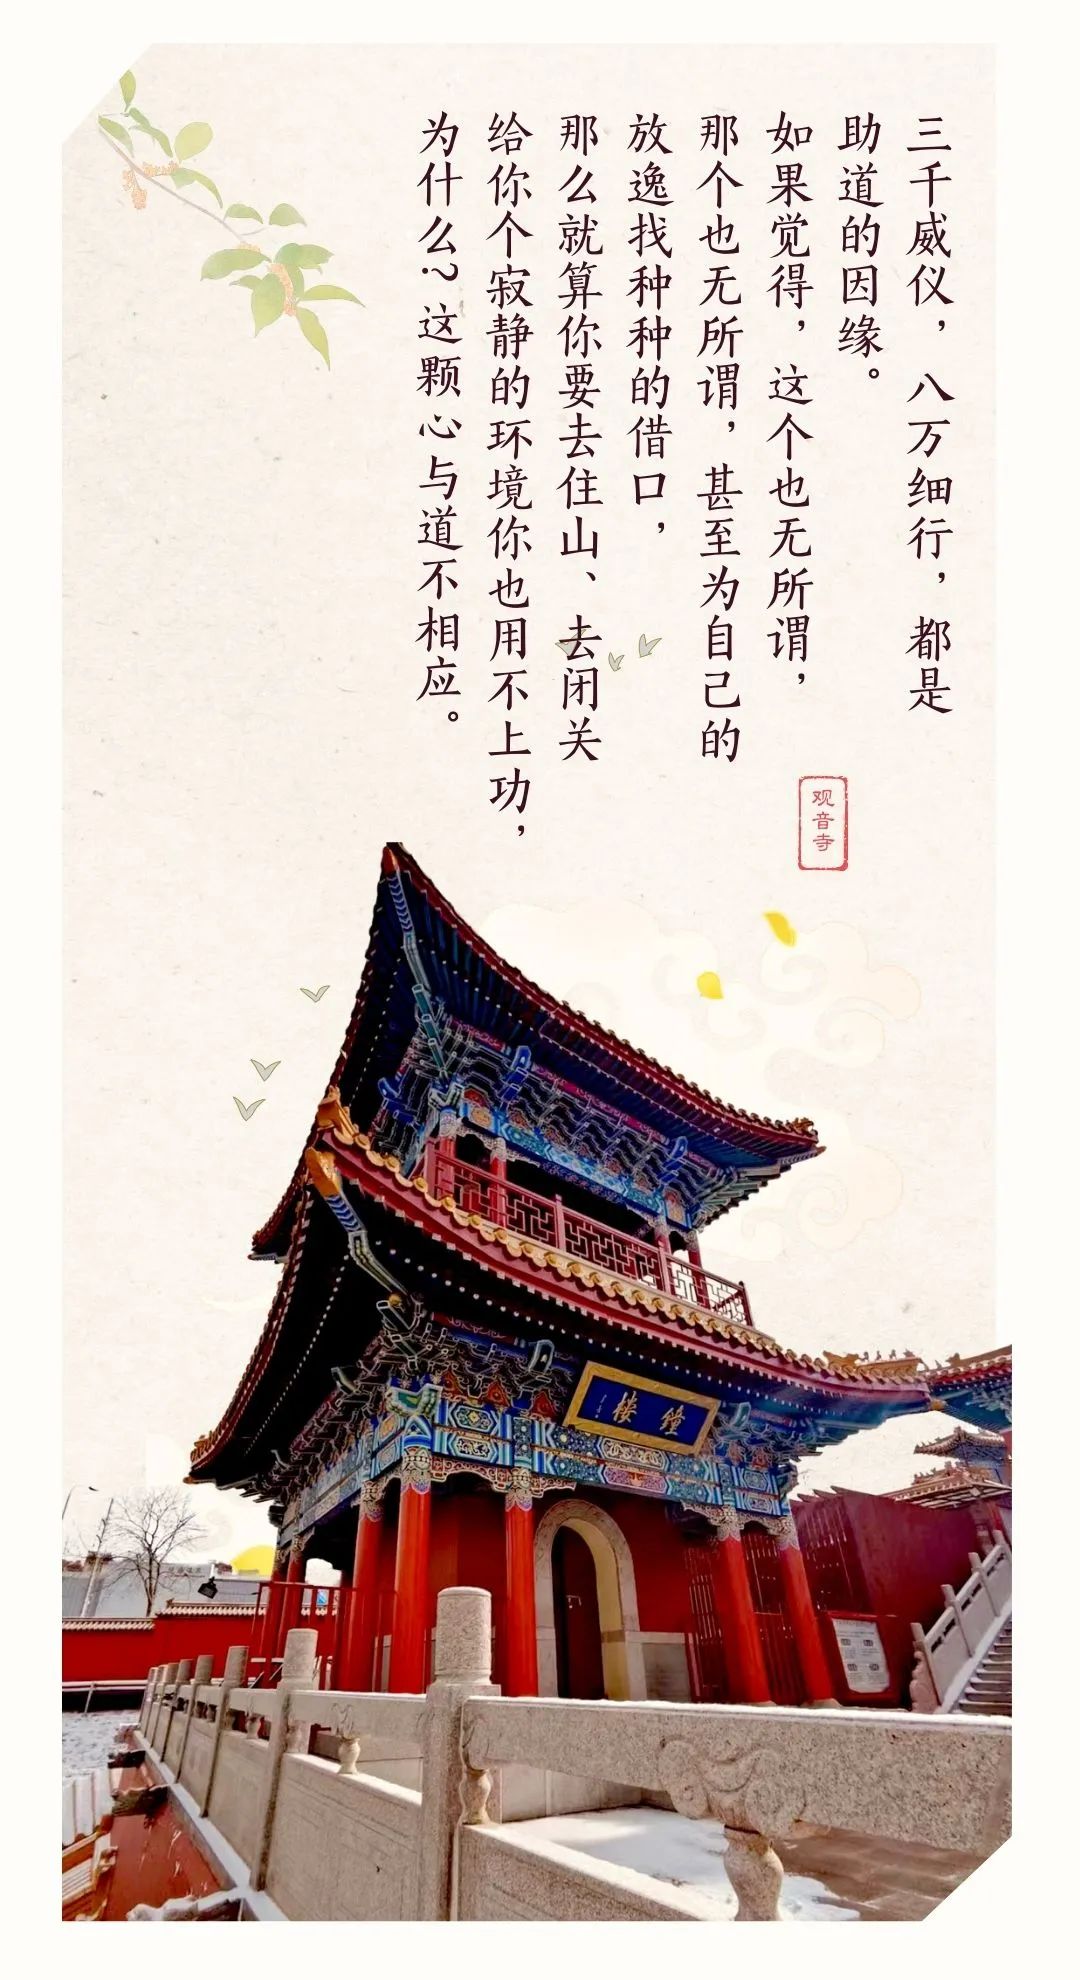 三千威仪，八万细行，都是
助道的因缘。
如果觉得，这个也无所谓，
那个也无所谓，甚至为自己的
放逸找种种的借口，
那么就算你要去住山、去闭关
给你个寂静的环境你也用不上功，
为什么？这颗心与道不相应。
观音寺
鐘楼